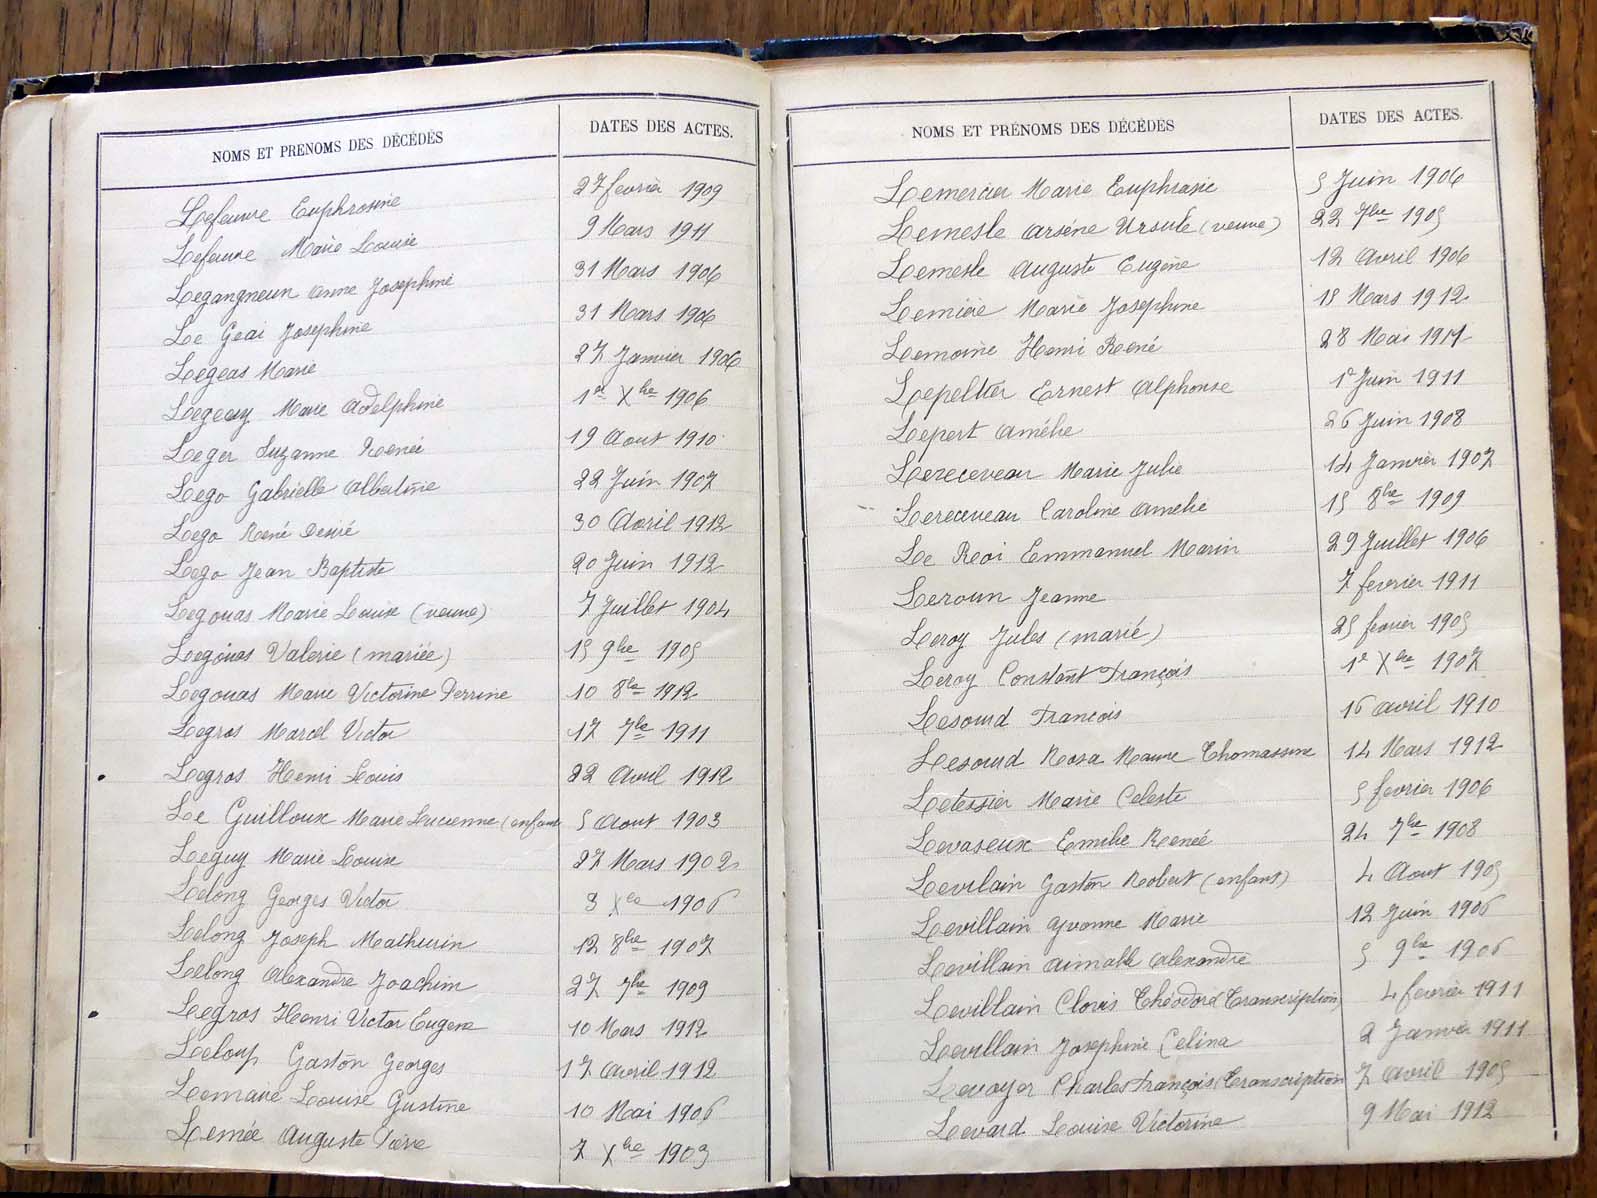 NOMS ET PRÉNOMS DES DÉCÉDÉS DATES DES ACTES.
Lefeuvre Euphrosine 27 février 1909
Lefeuvre Marie Louise 9 Mars 1911
Legangneux Anne Josephine 31 Mars 1906
Le Geai Josephine 31 Mars 1906
Legeas Marie 27 Janvier 1906
Legeay Marie Adelphine 1er Xbre 1906
Leger Suzanne Renée 19 Aout 1910
Lego Gabrielle Albertine 22 Juin 1907
Lego René Desiré 30 Avril 1912
Lego Jean Baptiste 20 Juin 1912
Legouas Marie Louise (veuve) 7 Juillet 1904
Legouas Valerie (mariée) 15 9bre 1905
Legouas Marie Victorine Perrine 10 8bre 1912
Legros Marcel Victor 17 7bre 1911
Legros Henri Louis 22 Avril 1912
Le Guilloux Marie Lucienne (enfant 5 Aout 1903
Leguy Marie Louise 27 Mars 1902
Lelong Georges Victor 3 Xbre 1906
Lelong Joseph Mathurin 12 8bre 1907
Lelong Alexandre Joachim 27 7bre 1909
Legros Henri Victor Eugene 10 Mars 1912
Leloup Gaston Georges 17 Avril 1912
Lemaire Louise Gustine 10 Mai 1906
Lemée Auguste 7 Xbre 1903
NOMS ET PRÉNOMS DES DÉCÉDÉS DATES DES ACTES.
Lemercier Marie Euphrasie 5 Juin 1906
Lemesle Arséne Ursule (veuve) 22 7bre 1905
Lemesle Auguste Eugène 12 Avril 1906
Lemiére Marie Josephine 15 Mars 1912
Lemoine Henri René 28 Mai 1911
Lepeltier Ernest Alphonse 1e Juin 1911
Lepert Amélie 26 Juin 1908
Lereceveau Marie Julie 14 Janvier 1907
Lereceveau Caroline Amelie 15 8bre 1909
Le Roi Emmanuel Marin 29 Juillet 1906
Leroun Jeanne 7 fevrier 1911
Leroy Jules (marié) 25 fevrier 1905
Leroy Constant François 1e Xbre 1907
Lesourd François 16 Avril 1910
Lesourd Rosa Thomassine 14 Mars 1912
Letessier Marie Celeste 5 fevrier 1906
Levaseux Emilie Renée 24 7bre 1908
Levilain Gaston Robert (enfant) 4 Aout 1905
Levillain Yvonne Marie 12 Juin 1906
Levillain Aimable Alexandre 5 9bre 1906
Levillain Clovis Théodore (Transcription) 4 fevrier 1911
Levillain Josephine Celina 2 Janvier 1911
Levoyer Charles François (Transcription 7 Avril 1905
Levard Louise Victorine 9 Mai 1912